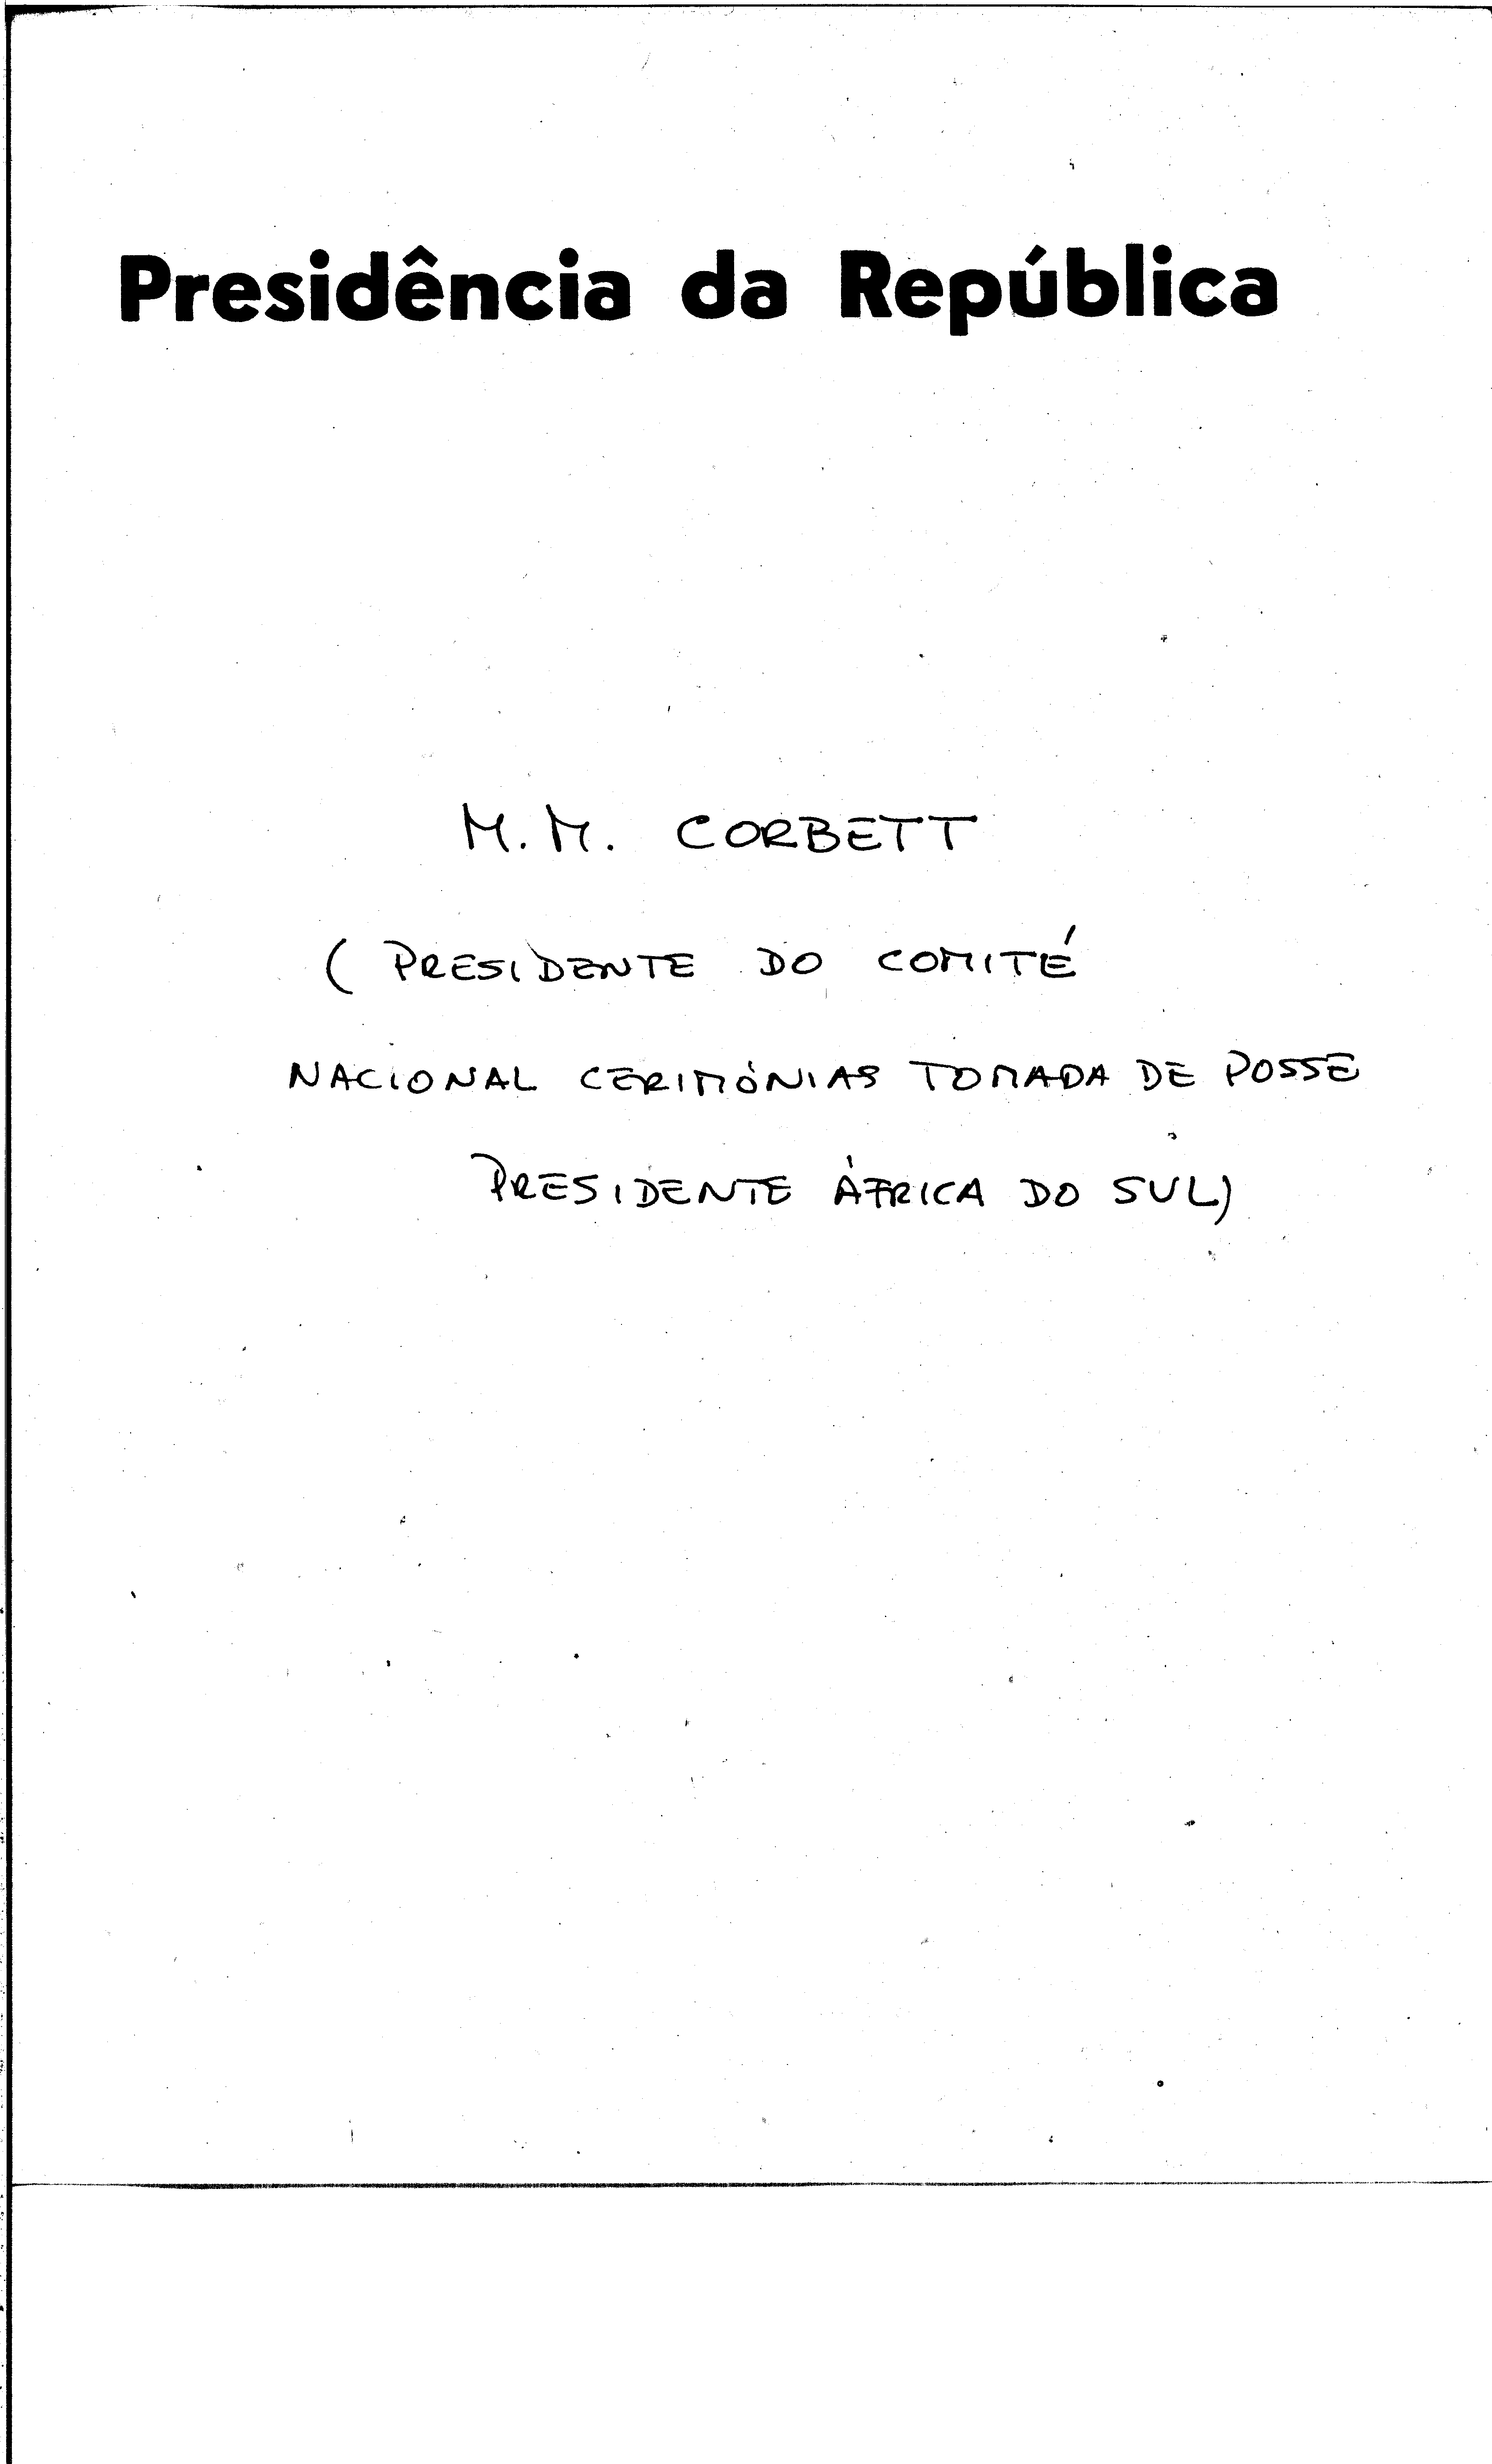 Presidência da República
M.M. CORBETT
( PRESIDENTE DO COMITÉ
NACIONAL CERIMÓNIAS TOMADA DE POSSE
PRESIDENTE ÁFRICA DO SUL)